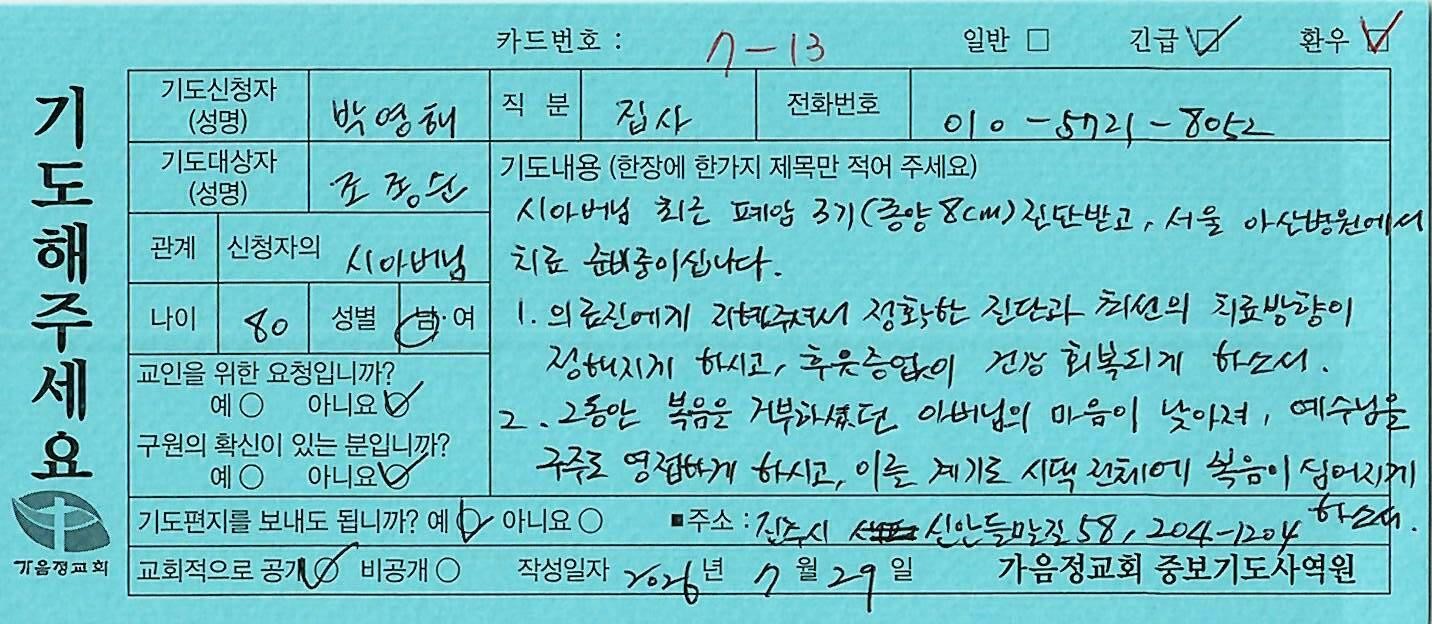 카드번호 : 7-13 일반 □ 긴급 ☑ 환우 ☑
기도해주세요
기도신청자 (성명) 박영해 직 분 집사 전화번호 010-5721-8052
기도대상자 (성명) 조정순
관계 신청자의 시아버님
나이 80 성별 남·여
교인을 위한 요청입니까?
예 ○ 아니요 ☑
구원의 확신이 있는 분입니까?
예 ○ 아니요 ☑
기도내용 (한장에 한가지 제목만 적어 주세요)
시아버님 최근 폐암 3기(종양 8cm) 진단받고, 서울 아산병원에서
치료 준비중이십니다.
1. 의료진에게 지혜주셔서 정확한 진단과 최선의 치료방향이
정해지게 하시고, 후유증없이 건강 회복되게 하소서.
2. 그동안 복음을 거부하셨던 아버님의 마음이 낮아져, 예수님을
구주로 영접하게 하시고, 이를 계기로 시댁 전체에 복음이 심어지게
하소서.
기도편지를 보내도 됩니까? 예 ☑ 아니요 ○ ■주소 : 진주시 신안들말길 58, 204-1204
교회적으로 공개 ☑ 비공개 ○ 작성일자 2026년 7월 29일 가음정교회 중보기도사역원
가음정교회